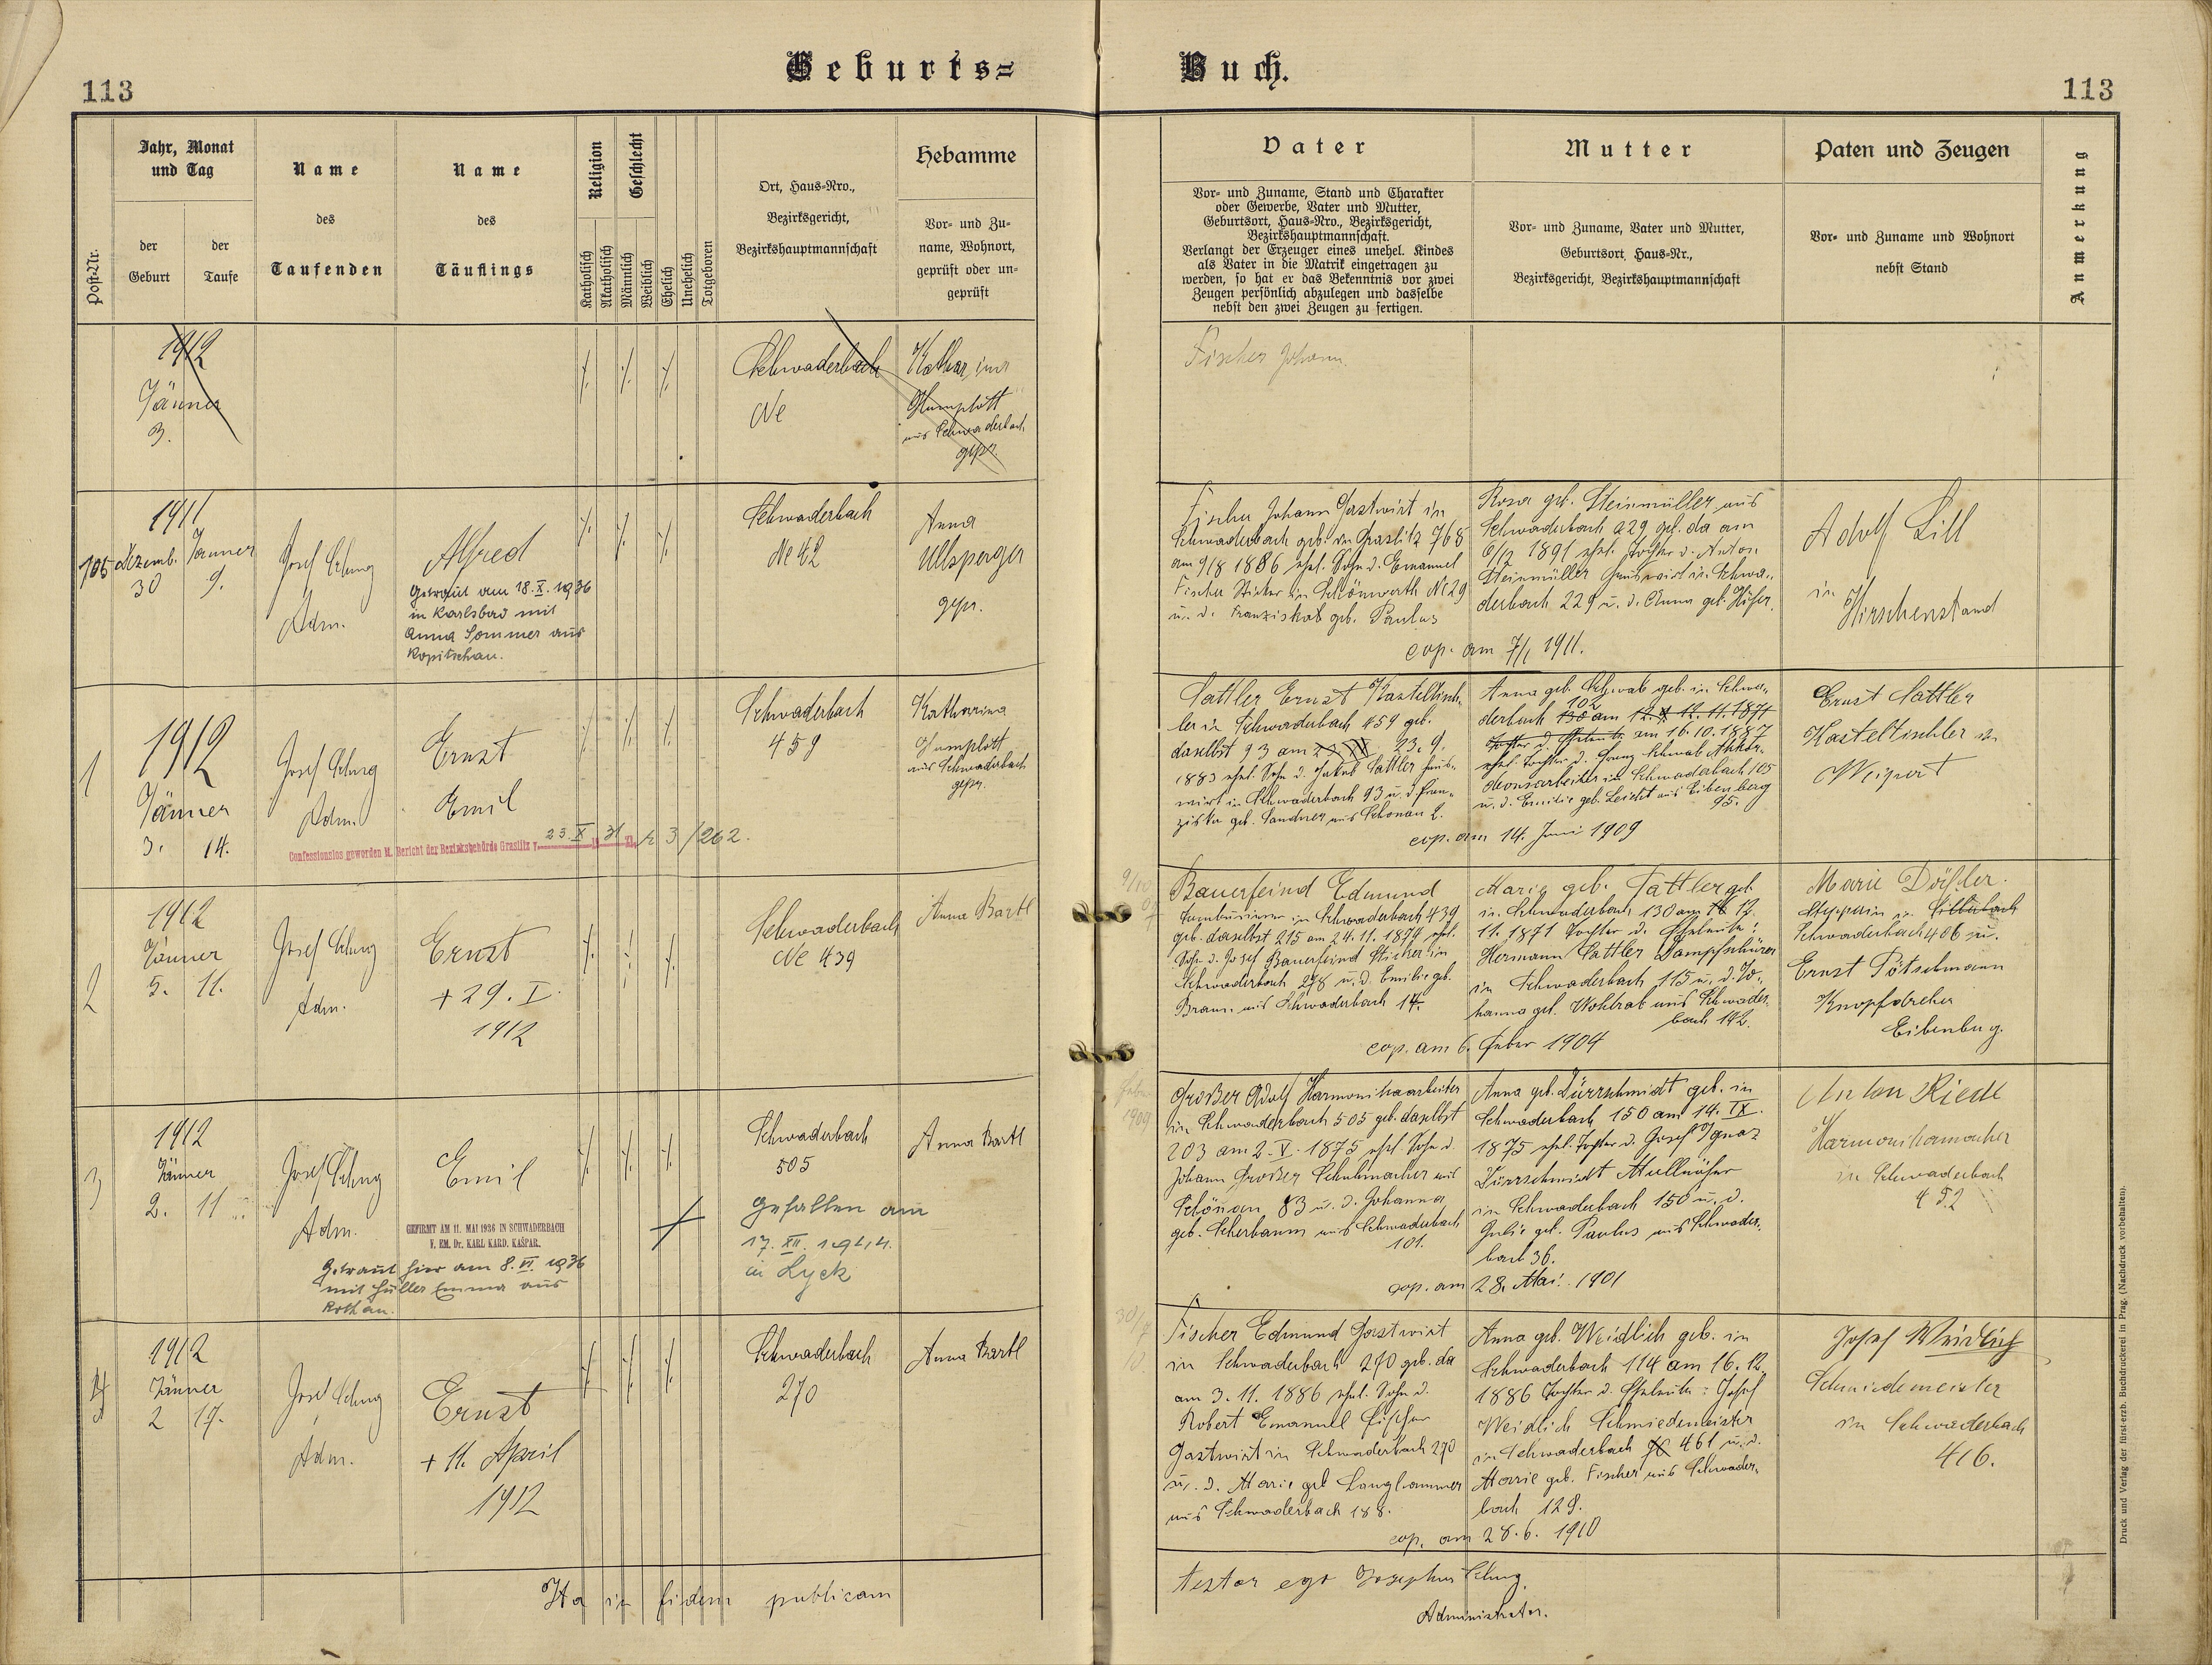 113
Geburts=
Buch.
113
Post-Nr.
Jahr, Monat
und Tag
der
Geburt
der
Taufe
Name
des
Taufenden
Name
des
Täuflings
Religion
Geschlecht
Katholisch
Akatholisch
Männlich
Weiblich
Ehelich
Unehelich
Totgeboren
Ort, Haus=Nro.,
Bezirksgericht,
Bezirkshauptmannschaft
Hebamme
Vor= und Zu=
name, Wohnort,
geprüft oder un=
geprüft
Vater
Vor= und Zuname, Stand und Charakter
oder Gewerbe, Vater und Mutter,
Geburtsort, Haus=Nro., Bezirksgericht,
Bezirkshauptmannschaft.
Verlangt der Erzeuger eines unehel. Kindes
als Vater in die Matrik eingetragen zu
werden, so hat er das Bekenntnis vor zwei
Zeugen persönlich abzulegen und dasselbe
nebst den zwei Zeugen zu fertigen.
Mutter
Vor= und Zuname, Vater und Mutter,
Geburtsort, Haus=Nr.,
Bezirksgericht, Bezirkshauptmannschaft
Paten und Zeugen
Vor= und Zuname und Wohnort
nebst Stand
Anmerkung
1912
Jänner
3.
Schwaderbach
No
Katharina
aus Schwaderbach
gepr.
Fischer Johann
105
1911
Dezemb.
30
Jänner
9.
Josef
Adm.
Alfred
Getraut am 18. X. 1936
in Karlsbad mit
Anna Sommer aus
Kopitschau.
Schwaderbach
No 42
Anna
Ullsperger
gepr.
Fischer Johann Gastwirt in
Schwaderbach geb. in Graslitz 768
am 9/8 1886 ehel. Sohn d. Emanuel
Fischer Sticker in Schönwerth No 29
u. d. Franziska geb. Paulus
Rosa geb. Steinmüller aus
Schwaderbach 229 geb. da am
1891 ehel. Tochter d. Anton
Steinmüller Gastwirt in Schwa-
derbach 229 u. d. Anna geb.
cop. am 7/1 1911.
Adolf Lill
in
Hirschenstand
1
1912
Jänner
3. 14.
Josef
Adm.
Ernst
Emil
Confessionslos geworden l. Bericht der Bezirksbehörde Graslitz v. 23. X 31 3/262.
Schwaderbach
459
Katharina
aus Schwaderbach
gepr.
Sattler Ernst Kasteltisch-
ler in Schwaderbach 459 geb.
daselbst 93 am 23. 9.
1883 ehel. Sohn d. Jakob Sattler Haus-
wirt in Schwaderbach 93 u. d. Fran-
ziska geb. Sandner aus Schönau 2.
Anna geb. Schwab geb. in Schwa-
102
derbach 130 am 12. 11. 1871
Tochter d. Eheleute am 16. 10. 1887
ehel. Tochter d. Franz Schwab Akkor-
deonsarbeiter in Schwaderbach 105
u. d. Emilie geb. Leicht aus Eibenberg
95.
cop. am 14. Juni 1909
Ernst Sattler
Kasteltischler in
Weipert
2
1912
Jänner
5. 11.
Josef
Adm.
Ernst
+ 29. I.
1912
Schwaderbach
No 439
Anna Bartl
Bauerfeind Edmund
Tambourierer in Schwaderbach 439
geb. daselbst 215 am 24. 11. 1874 ehel.
Sohn d. Josef Bauerfeind Sticker in
Schwaderbach 278 u. d. Emilie geb.
Braun aus Schwaderbach 14.
Marie geb. Sattler geb.
in Schwaderbach 130 am 12.
11. 1871 Tochter d. Eheleute:
Hermann Sattler Dampfschürer
in Schwaderbach 115 u. d. Jo-
hanna geb. Wohlrab aus Schwader-
bach 142.
cop. am 6. Feber 1904
Marie Dörfler.
Stepperin in
Schwaderbach 406 u.
Ernst Pötschmann
Knopfdreher
Eibenberg.
3
1912
Jänner
2. 11
Josef
Adm.
Emil
GEFIRMT AM 11. MAI 1936 IN SCHWADERBACH
V. EM. Dr. KARL KARD. KAŠPAR.
Getraut hier am 8. VI. 1936
mit Füller Emma aus
Rothau.
Schwaderbach
505
Gefallen am
17. XII. 1944.
in Lyck
Anna Bartl
Großer Adolf Harmonikaarbeiter
in Schwaderbach 505 geb. daselbst
203 am 2. V. 1875 ehel. Sohn d.
Johann Großer Schuhmacher aus
Schönau 83 u. d. Johanna
geb. Scherbaum aus Schwaderbach
101.
Anna geb. Dürrschmidt geb. in
Schwaderbach 150 am 14. IX.
1875 ehel. Tochter d. Josef Ignaz
Dürrschmidt Mullnäher
in Schwaderbach 150 u. d.
Julie geb. Paulus aus Schwader-
bach 36.
cop. am 28. Mai 1901
Anton Riedl
Harmonikamacher
in Schwaderbach
452
4
1912
Jänner
2 17.
Josef
Adm.
Ernst
+ 11. April
1912
Schwaderbach
270
Anna Bartl
Fischer Edmund Gastwirt
in Schwaderbach 270 geb. da
am 3. 11. 1886 ehel. Sohn d.
Robert Emanuel Fischer
Gastwirt in Schwaderbach 270
u. d. Marie geb. Langhammer
aus Schwaderbach 188.
Anna geb. Weidlich geb. in
Schwaderbach 114 am 16. 12.
1886 Tochter d. Eheleute: Josef
Weidlich Schmiedemeister
in Schwaderbach 461 u. d.
Marie geb. Fischer aus Schwader-
bach 128.
cop. am 28. 6. 1910
Josef Weidlich
Schmiedemeister
in Schwaderbach
416.
Ita in fidem publicam
testor ego Josephus
Administrator.
Druck und Verlag der fürst-erzb. Buchdruckerei in Prag. (Nachdruck vorbehalten).